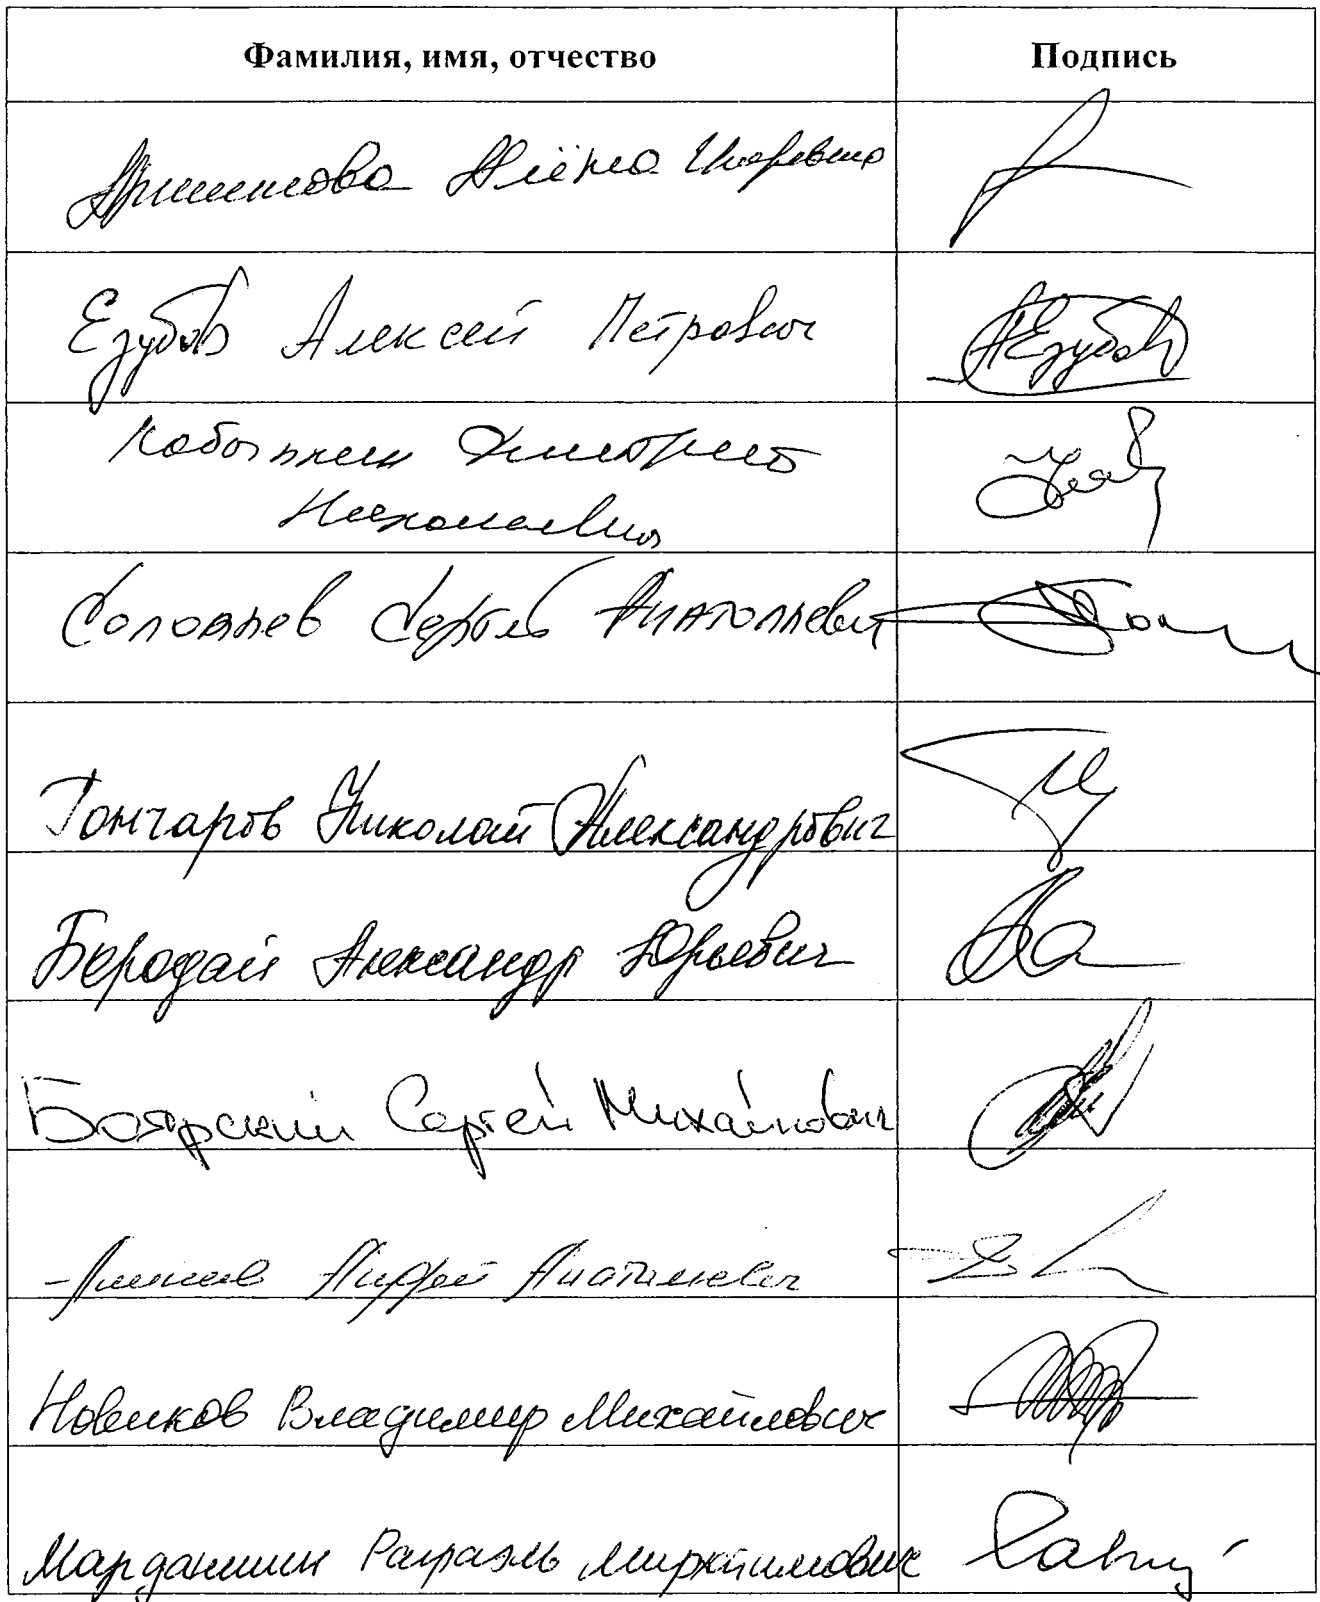 Фамилия, имя, отчество Подпись
Аршинова Алёна Игоревна
Езубов Алексей Петрович АЕзубов
Кобылкин Дмитрий
Николаевич
Соловьев Сергей Анатольевич
Гончаров Николай Александрович
Бородай Александр Юрьевич
Боярский Сергей Михайлович
Андрей Анатольевич
Новиков Владимир Михайлович
Марданшин Рафаэль Мирхатимович